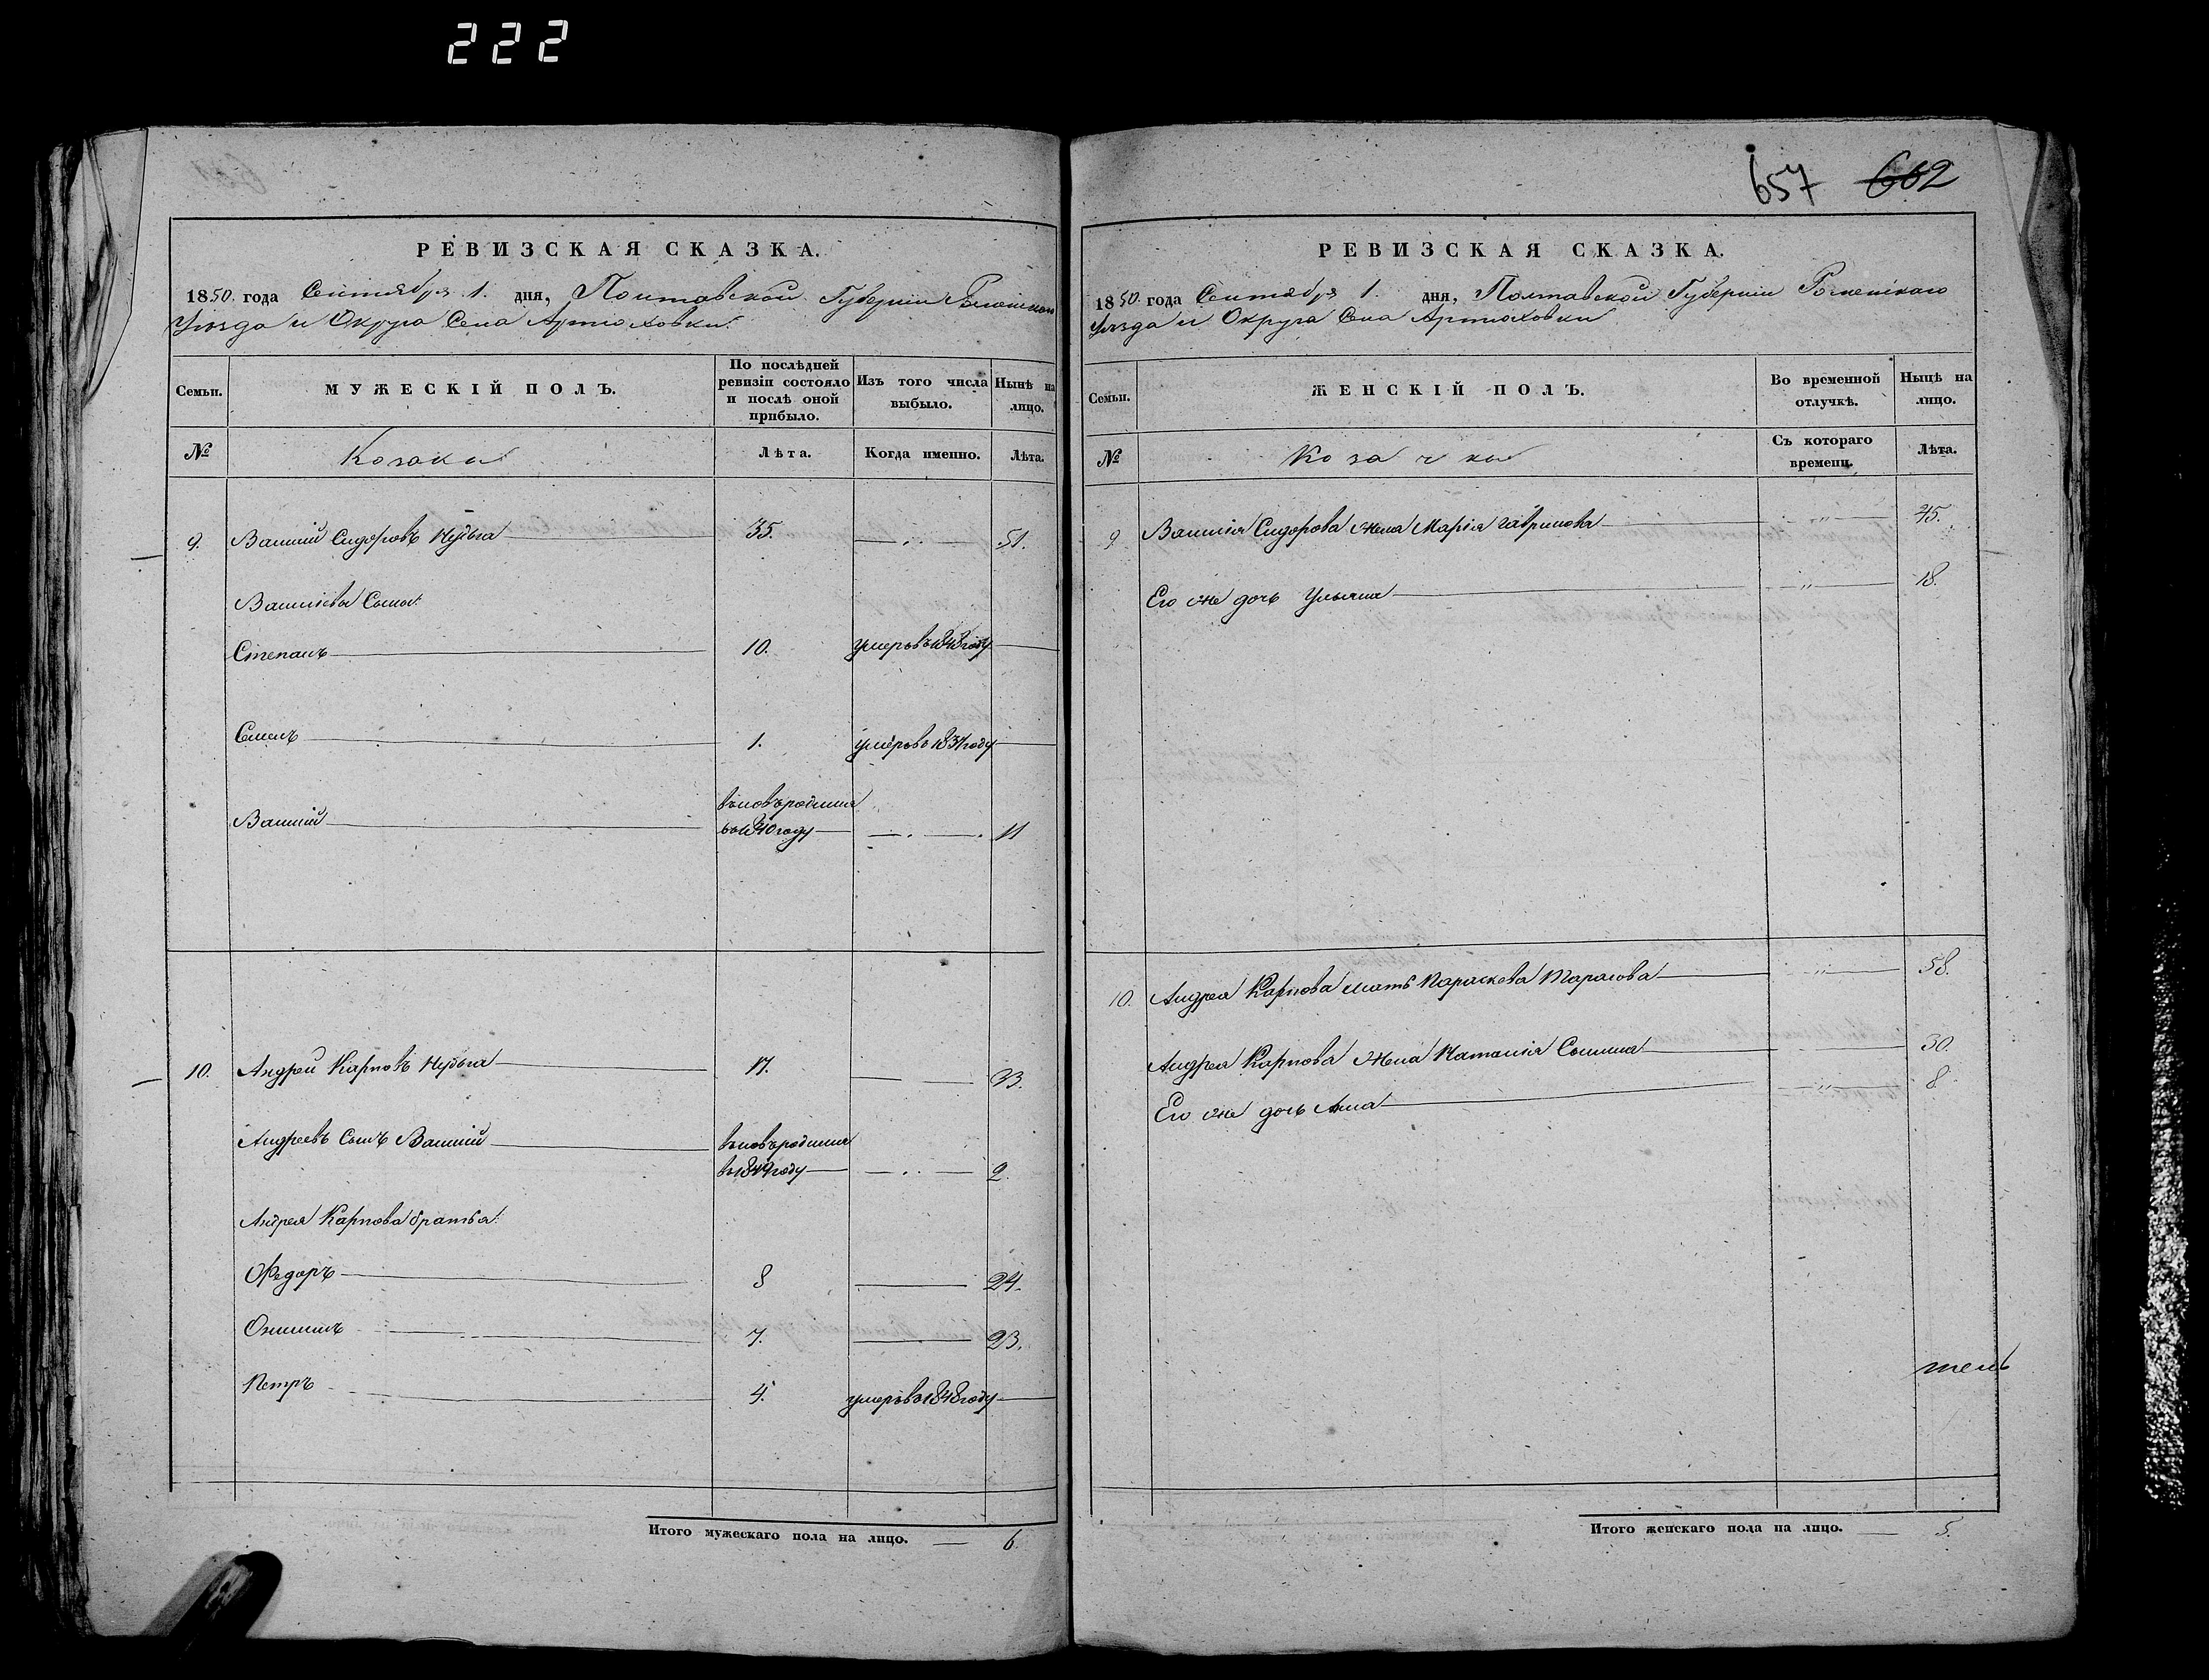 222
657 602
РЕВИЗСКАЯ СКАЗКА.
1850. года Сентября 1. дня, Полтавской Губернiи Роменского
Уѣзда и Округа Села Артюховки.
Семьи.
МУЖЕСКIЙ ПОЛЪ.
По послѣдней ревизiи состояло и послѣ оной прибыло.
Изъ того числа выбыло.
Нынѣ на лицо.
№
Козаки
Лѣта.
Когда именно.
Лѣта.
9. Василiй Сидоровъ Нудьга 35. 51.
Василiевы Сыны:
Степанъ 10. умеръ въ 1848 году
Семенъ 1. умеръ въ 1837 году
Василiй вновърожденъ
въ 1840 году 11
10. Андрей Карповъ Нудьга 17. 33.
Андреевъ Сынъ Василiй вновърожденъ
въ 1849 году 2.
Андрея Карпова братья:
Федоръ 8 24.
Онисимъ 7. 23.
Петръ 4. умеръ въ 1848 году
Итого мужескаго пола на лицо. 6.
РЕВИЗСКАЯ СКАЗКА.
1850. года Сентября 1. дня, Полтавской Губернiи Роменскаго
Уѣзда и Округа Села Артюховки
Семьи.
ЖЕНСКIЙ ПОЛЪ.
Во временной отлучкѣ.
Нынѣ на лицо.
№
Козачки
Съ котораго времени.
Лѣта.
9 Василiя Сидорова жена Марiя Гаврилова 45.
Его же дочь Ульяна 18.
10. Андрея Карпова мать Параскева Тарасова 58.
Андрея Карпова жена Наталiя 30.
Его же дочь Анна 8
Итого женскаго пола на лицо. 5.